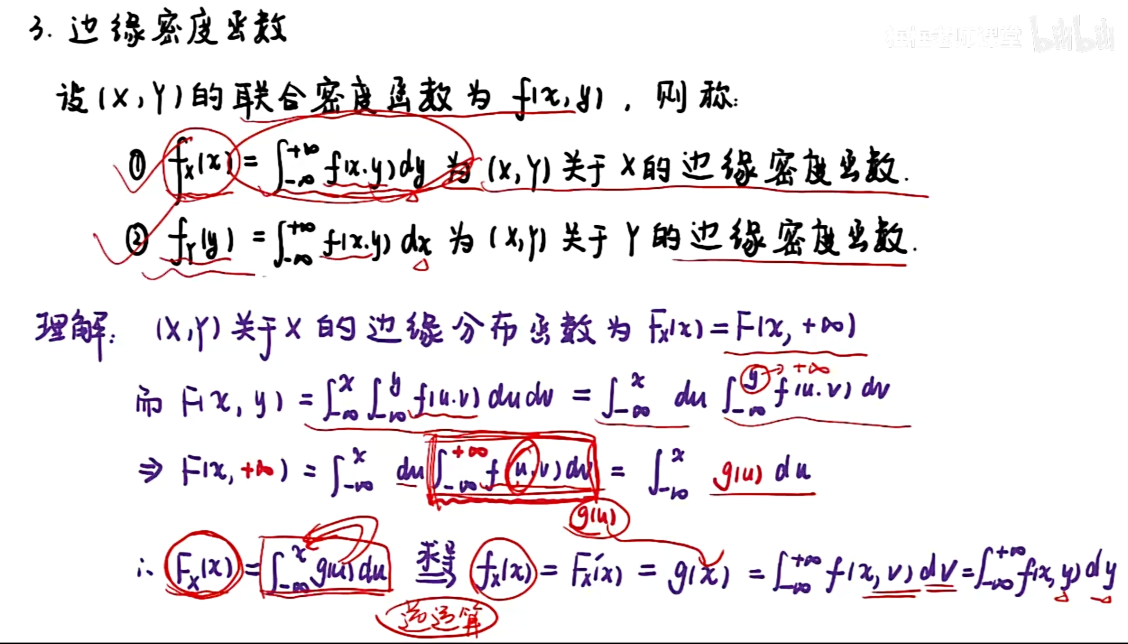 3. 边缘密度函数
bilibili
设(X,Y)的联合密度函数为 f(x,y),则称:
① f_X(x) = ∫_{-∞}^{+∞} f(x,y)dy 为(X,Y)关于X的边缘密度函数.
② f_Y(y) = ∫_{-∞}^{+∞} f(x,y)dx 为(X,Y)关于Y的边缘密度函数.
理解: (X,Y)关于X的边缘分布函数为 F_X(x) = F(x,+∞)
而 F(x,y) = ∫_{-∞}^{x} ∫_{-∞}^{y} f(u,v)dudv = ∫_{-∞}^{x} du ∫_{-∞}^{y→+∞} f(u,v)dv
⇒ F(x,+∞) = ∫_{-∞}^{x} du ∫_{-∞}^{+∞} f(u,v)dv = ∫_{-∞}^{x} g(u)du
g(u)
∴ F_X(x) = ∫_{-∞}^{x} g(u)du ⇒求导 f_X(x) = F_X'(x) = g(x) = ∫_{-∞}^{+∞} f(x,v)dv = ∫_{-∞}^{+∞} f(x,y)dy
逆运算